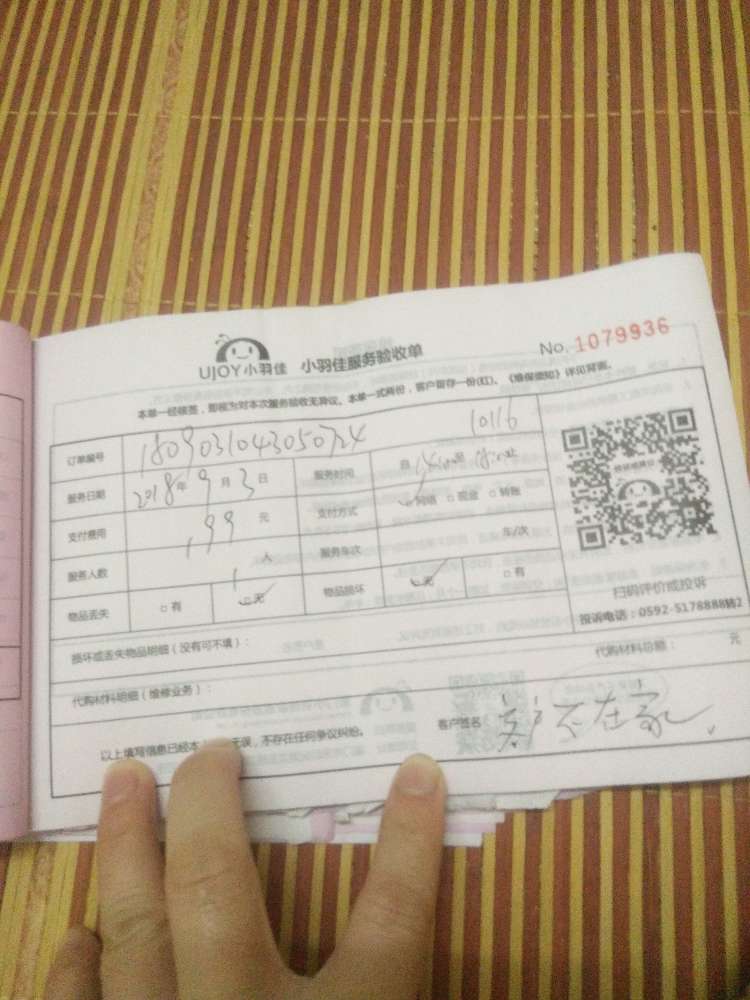 UJOY小羽佳 小羽佳服务验收单 No.1079936
本单一经核签，即视为对本次服务验收无异议。本单一式两份，客户留存一份(红)。《维保须知》详见背面。
订单编号 1809031043050724 10116
服务日期 2018年9月3日 服务时间 自 14:00 至 18:00止
支付费用 199元 支付方式 ✓网络 □现金 □转账
服务人数 1人 服务车次 车/次
物品丢失 □有 ✓无 物品损坏 ✓无 □有
扫码评价或投诉
投诉电话：0592-5178888转2
损坏或丢失物品明细（没有可不填）：
代购材料明细（维修业务）： 代购材料总额： 元
以上填写信息已经本 无误，不存在任何争议纠纷。 客户签名 客户不在家